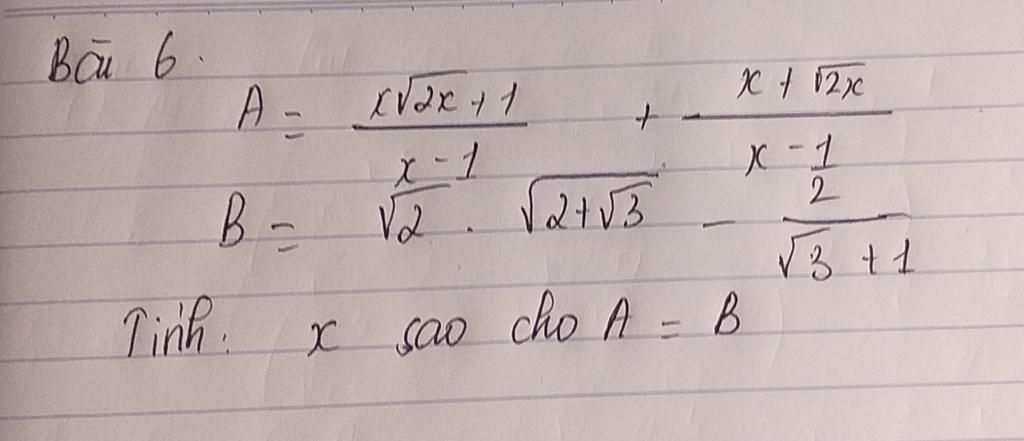 Bài 6.
A = (x√2x + 1)/(x - 1) + (x + √2x)/(x - 1)
B = √2 . √(2+√3) - 2/(√3 + 1)
Tính: x sao cho A = B